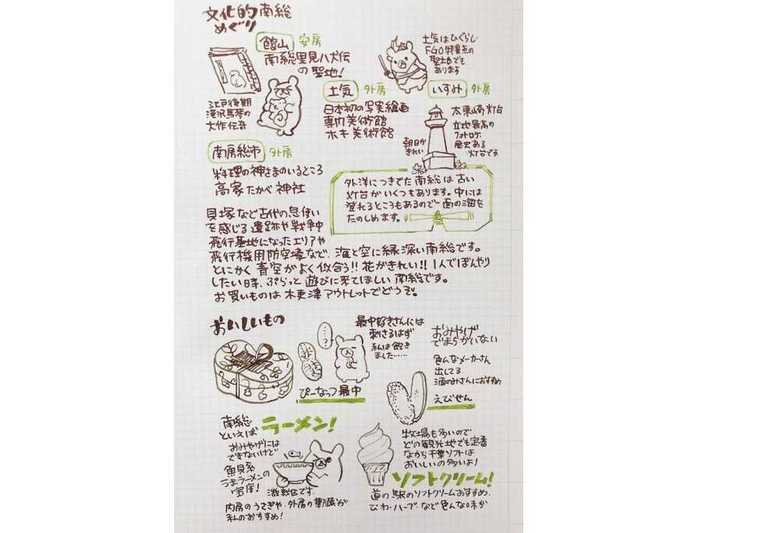 文化的南総
めぐり
館山 安房
南総里見八犬伝
の聖地！
江戸後期
滝沢馬琴の
大作伝奇
土気 外房
日本初の写実絵画
専門美術館
ホキ美術館
土気はひぐらし
FGO特異点の
聖地でも
あります
いすみ 外房
太東崎灯台
立地最高の
フォトロケ
歴史ある
灯台です
朝日が
きれい
南房総市 外房
料理の神さまのいるところ
高家 たかべ 神社
外洋につきでた南総は古い
灯台がいくつもあります。中には
登れるところもあるので一面の海を
たのしめます。
貝塚など古代の息使い
を感じる遺跡や戦争中
飛行基地になったエリアや
飛行機用防空壕など、海と空に縁深い南総です。
とにかく青空がよく似合う!! 花がきれい!! 1人でぼんやり
したい日ま、ぷらっと遊びに来てほしい南総です。
お買いものは木更津アウトレットでどうぞ。
おいしいもの
最中好きさんには
刺さるはず
私は飽き
ました……
ぴーなっつ最中
おみやげ
でまちがいない
色んなメーカーさん
出してる
酒のみさんにおすすめ
えびせん
南総
といえば ラーメン！
おみやげには
できないけど
魚貝系
うまラーメンの
宝庫！
激戦区です
内房のうてぎや、外房の
私のおすすめ！
牧場も多いので
どの観光地でも定番
ながら千葉ソフトは
おいしいの多いよ！
ソフトクリーム！
道の駅のソフトクリームおすすめ。
びわ・ハーブなど色んな味が